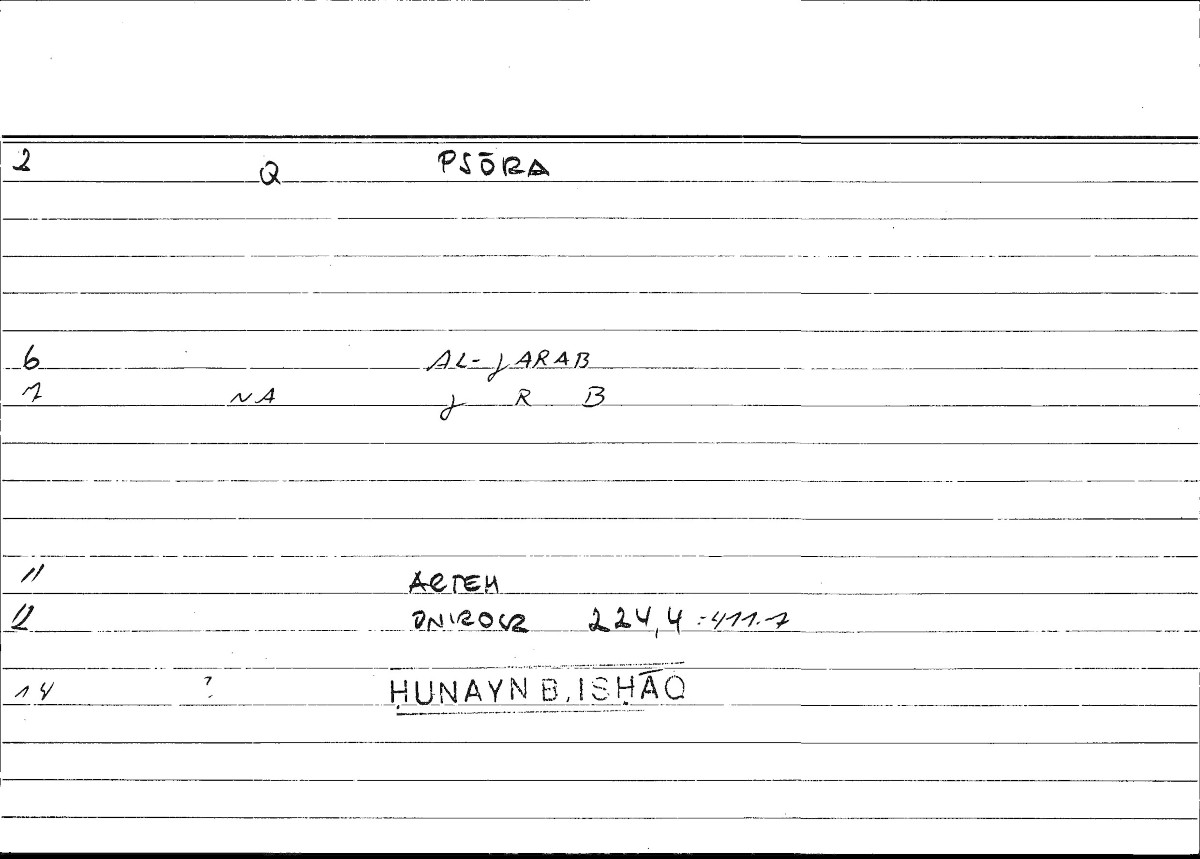 2 Q PSŌRA
6 AL-ǧARAB
7 NA ǧ R B
11 ARTEM
12 ONIROCR 224,4 :411.7
14 ? ḤUNAYN B. ISḤĀQ